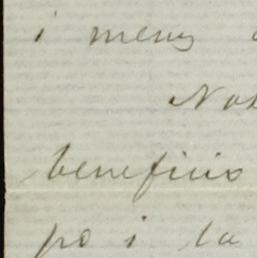 i menos
No
beneficio
po i la